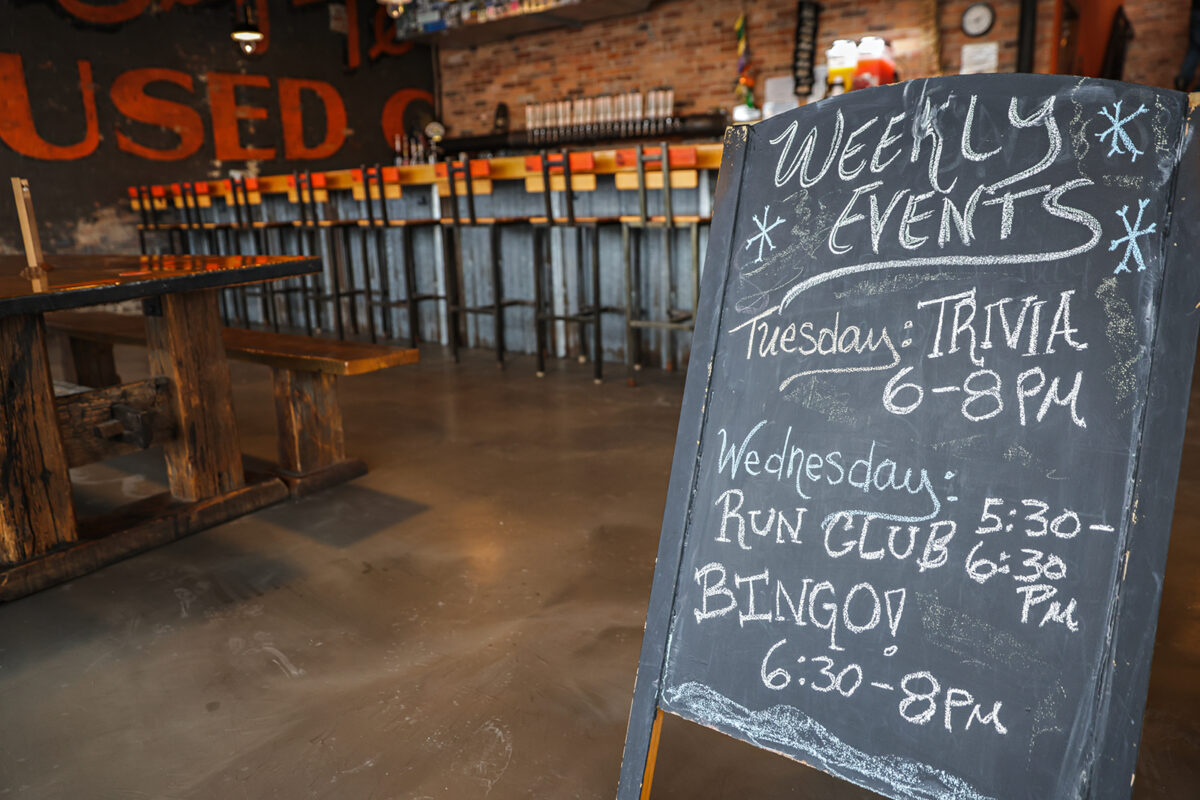 USED
WEEKLY
EVENTS
Tuesday: TRIVIA
6-8PM
Wednesday:
RUN CLUB 5:30-
6:30
PM
BINGO!
6:30-8PM